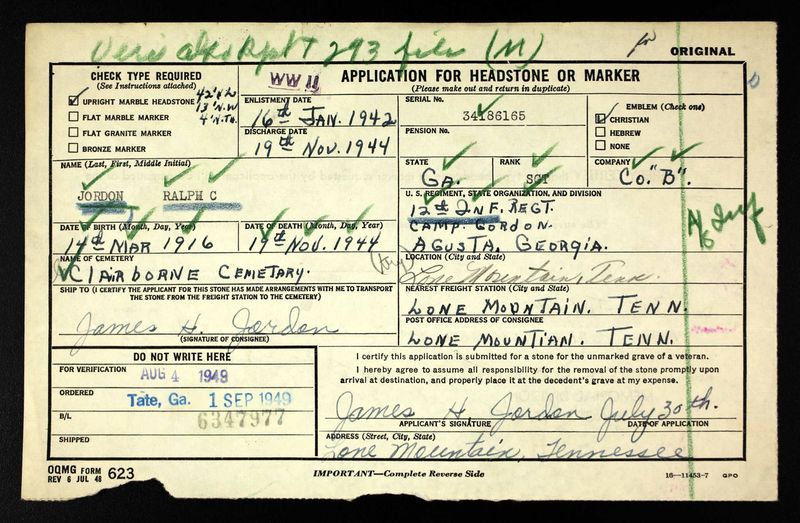 Veris also Rpt 293 file (M)
ORIGINAL
CHECK TYPE REQUIRED
(See Instructions attached)
UPRIGHT MARBLE HEADSTONE
FLAT MARBLE MARKER
FLAT GRANITE MARKER
BRONZE MARKER
WW II
APPLICATION FOR HEADSTONE OR MARKER
(Please make out and return in duplicate)
ENLISTMENT DATE
16th JAN. 1942
DISCHARGE DATE
19th NOV. 1944
SERIAL No.
34186165
PENSION No.
EMBLEM (Check one)
CHRISTIAN
HEBREW
NONE
NAME (Last, First, Middle Initial)
JORDON RALPH C
STATE
GA.
RANK
SGT
COMPANY
CO. "B".
U. S. REGIMENT, STATE ORGANIZATION, AND DIVISION
12th INF. REGT.
CAMP. GORDON.
AGUSTA, GEORGIA.
DATE OF BIRTH (Month, Day, Year)
14th MAR 1916
DATE OF DEATH (Month, Day, Year)
19th NOV. 1944
NAME OF CEMETERY
CLAIRBORNE CEMETARY.
LOCATION (City and State)
Lone Mountain, Tenn.
SHIP TO (I CERTIFY THE APPLICANT FOR THIS STONE HAS MADE ARRANGEMENTS WITH ME TO TRANSPORT THE STONE FROM THE FREIGHT STATION TO THE CEMETERY)
James H. Jordon
(SIGNATURE OF CONSIGNEE)
NEAREST FREIGHT STATION (City and State)
LONE MOUNTAIN. TENN.
POST OFFICE ADDRESS OF CONSIGNEE
LONE MOUNTIAN. TENN.
DO NOT WRITE HERE
FOR VERIFICATION
AUG 4 1949
ORDERED
Tate, Ga. 1 SEP 1949
B/L
6347977
SHIPPED
I certify this application is submitted for a stone for the unmarked grave of a veteran.
I hereby agree to assume all responsibility for the removal of the stone promptly upon
arrival at destination, and properly place it at the decedent's grave at my expense.
James H Jordon July 30th.
APPLICANT'S SIGNATURE DATE OF APPLICATION
ADDRESS (Street, City, State)
Lone Mountain, Tennessee
OQMG FORM 623
REV 6 JUL 48
IMPORTANT—Complete Reverse Side
16—11453-7 GPO